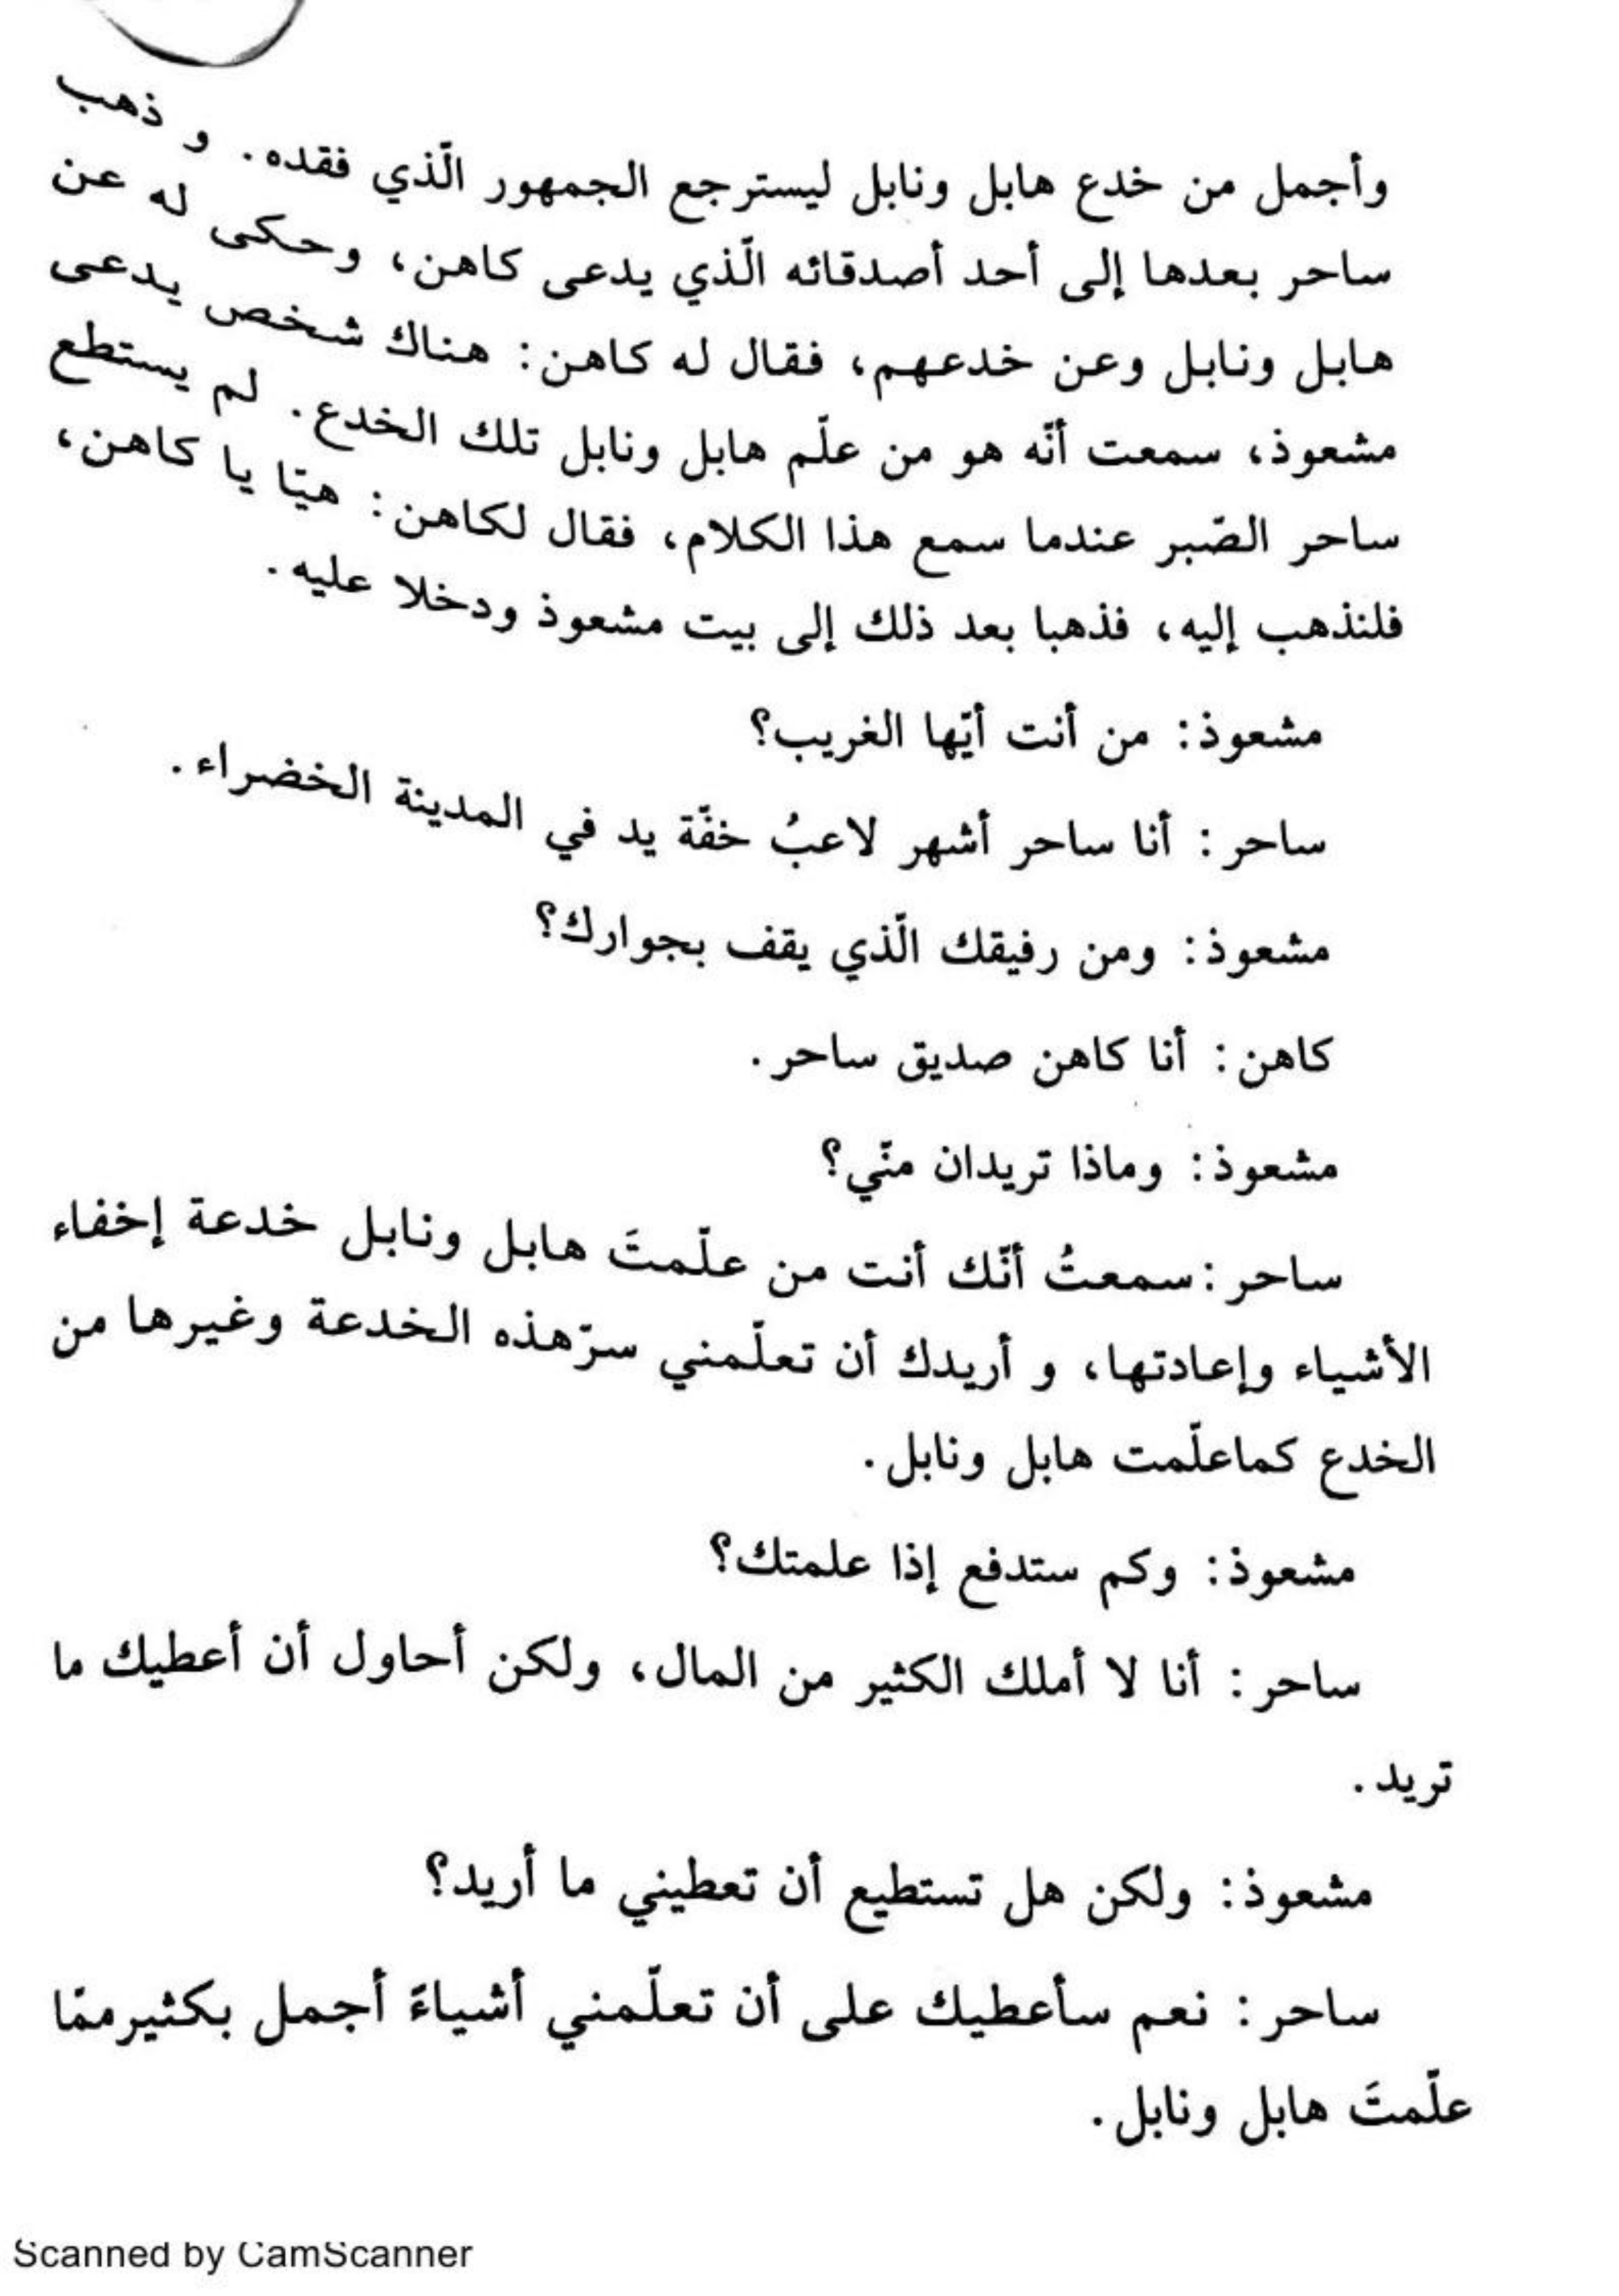 وأجمل من خدع هابل ونابل ليسترجع الجمهور الّذي فقده. و ذهب
ساحر بعدها إلى أحد أصدقائه الّذي يدعى كاهن، وحكى له عن
هابل ونابل وعن خدعهم، فقال له كاهن: هناك شخص يدعى
مشعوذ، سمعت أنّه هو من علّم هابل ونابل تلك الخدع. لم يستطع
ساحر الصّبر عندما سمع هذا الكلام، فقال لكاهن: هيّا يا كاهن،
فلنذهب إليه، فذهبا بعد ذلك إلى بيت مشعوذ ودخلا عليه.
مشعوذ: من أنت أيّها الغريب؟
ساحر: أنا ساحر أشهر لاعبُ خفّة يد في المدينة الخضراء.
مشعوذ: ومن رفيقك الّذي يقف بجوارك؟
كاهن: أنا كاهن صديق ساحر.
مشعوذ: وماذا تريدان منّي؟
ساحر:سمعتُ أنّك أنت من علّمتَ هابل ونابل خدعة إخفاء
الأشياء وإعادتها، و أريدك أن تعلّمني سرّهذه الخدعة وغيرها من
الخدع كماعلّمت هابل ونابل.
مشعوذ: وكم ستدفع إذا علمتك؟
ساحر: أنا لا أملك الكثير من المال، ولكن أحاول أن أعطيك ما
تريد.
مشعوذ: ولكن هل تستطيع أن تعطيني ما أريد؟
ساحر: نعم سأعطيك على أن تعلّمني أشياءً أجمل بكثيرممّا
علّمتَ هابل ونابل.
Scanned by CamScanner